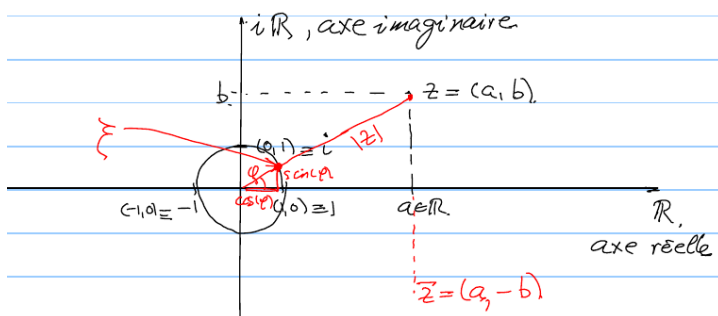 iℝ, axe imaginaire
b
z = (a, b)
ξ
(0,1) ≡ i
|z|
φ
sin(φ)
cos(φ)
(-1,0) ≡ -1
(1,0) ≡ 1
a∈ℝ
ℝ,
axe réelle
z̅ = (a, -b)